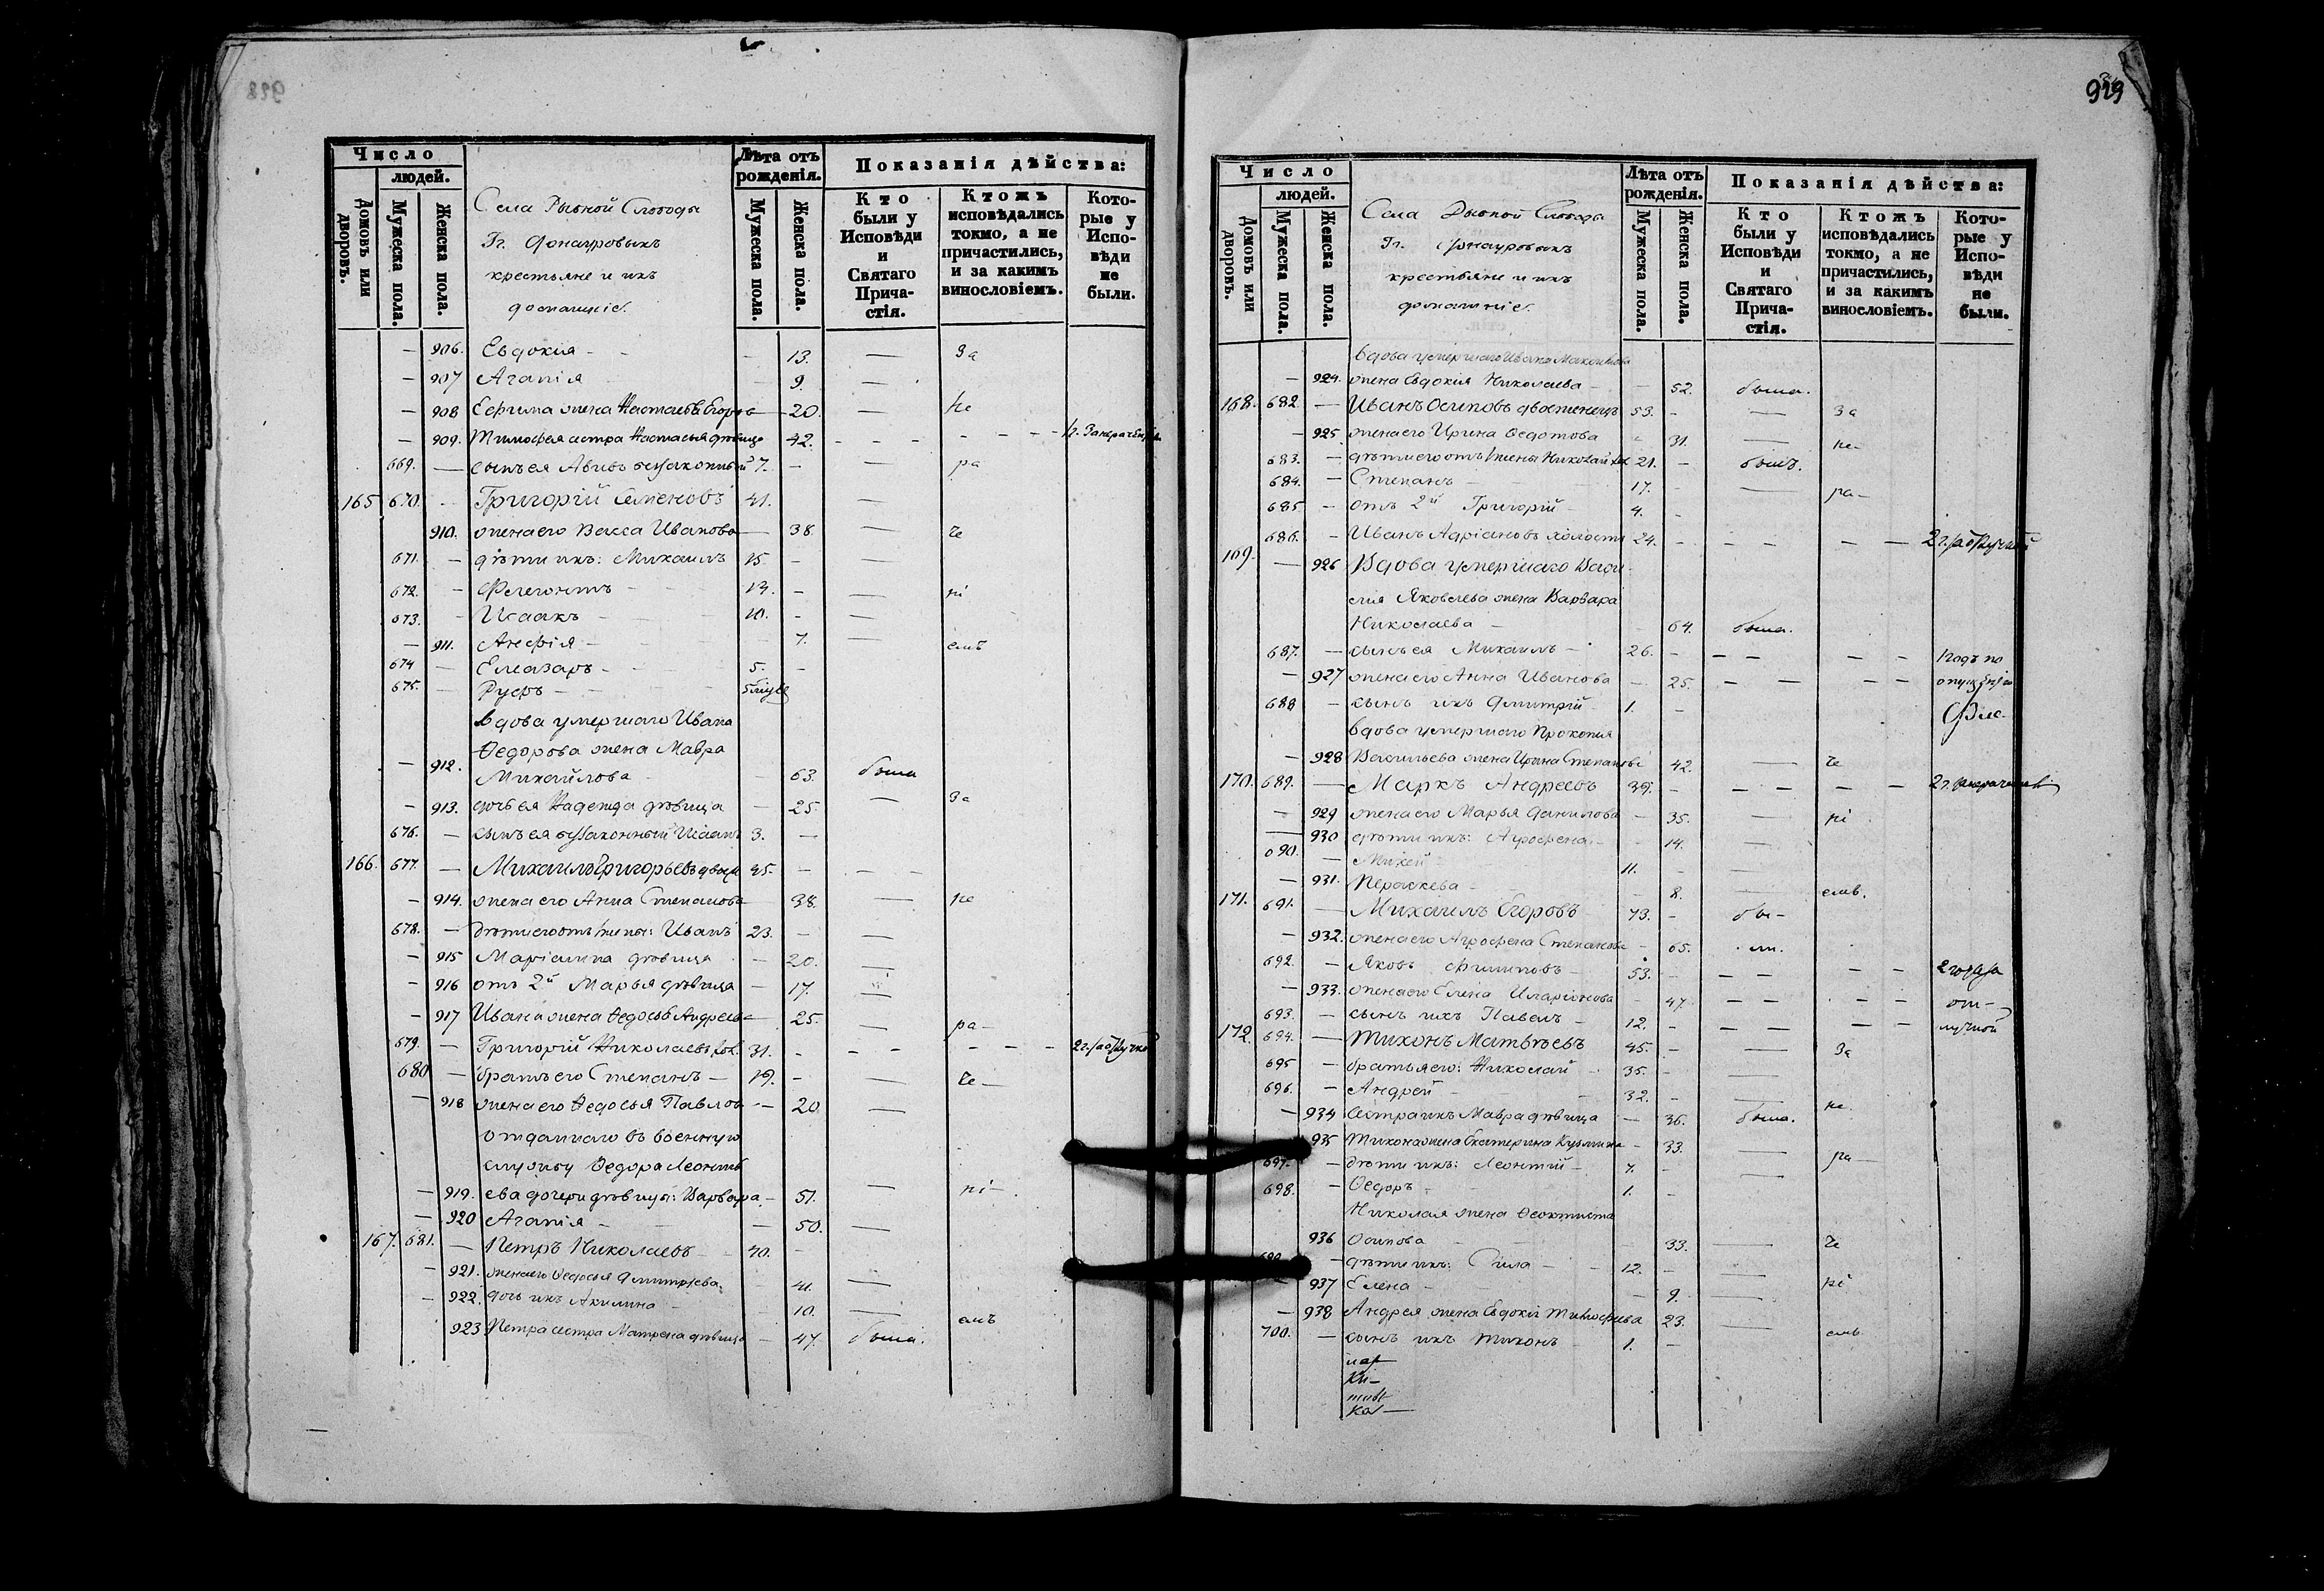 929
Число
людей.
Домовъ или дворовъ.
Мужеска пола.
Женска пола.
Села Рыбной Слободы
Гг. Фонауровыхъ
крестьяне и ихъ
домашніе.
Лѣта отъ рожденія.
Мужеска пола.
Женска пола.
Показанія дѣйства:
Кто были у Исповѣди и Святаго Причастія.
Ктожъ исповѣдались токмо, а не причастились, и за какимъ винословіемъ.
Которые у Исповѣди не были.
— 906. Евдокія — 13. — За
— 907 Агапія — 9. —
— 908 Ефима жена Настасья Егорова — 20. — не
— 909. Тимофея сестра Настасья дѣвица 42. - - - - -
669. — сынъ ея Авивъ незаконный 7. - — ра
165 670. - Григорій Семеновъ 41. —
910. жена его Васса Иванова — 38. — че
671. — дѣти ихъ: Михаилъ 15. - —
672. - Флегонтъ 14. - — ні
673. - Исаакъ 10. - —
— 911. Анфія — 7. — емъ
674 — Елеазаръ — 5. -
675. — Руфъ —
вдова умершаго Ивана
Ѳедорова жена Мавра
— 912. Михайлова — 63. была
— 913. дочь ея Надежда дѣвица — 25. — За
676. — сынъ ея незаконный Исаакъ 3. —
166. 677. — Михаилъ Григорьевъ 45. - - - -
— 914. жена его Анна Степанова 38. — не
678. — дѣти его отъ 1 жены: Иванъ 23. - —
— 915 Маріанна дѣвица — 20. —
— 916 отъ 2й Марья дѣвица — 17. —
— 917 Ивана жена Ѳедосья Андреева 25. — ра—
679. — Григорій Николаевъ хол. 31. - - - - - -
680 — братъ его Степанъ — 19. - — че—
— 918 жена его Ѳедосья Павлова — 20 —
отданнаго въ военную
службу Ѳедора Леонтье
— 919. ева дочери дѣвицы: Варвара — 51. — ні—
— 920 Агапія — 50. —
167. 681. — Петръ Николаевъ — 40. -
— 921. жена его Ѳедосья Дмитріева 41. —
— 922. дочь ихъ Акилина — 10. — емъ
923 Петра сестра Матрена дѣвица — 47. была.
Число
людей.
Домовъ или дворовъ.
Мужеска пола.
Женска пола.
Села Рыбной Слободы
Гг. Фонауровыхъ
крестьяне и ихъ
домашніе.
Лѣта отъ рожденія.
Мужеска пола.
Женска пола.
Показанія дѣйства:
Кто были у Исповѣди и Святаго Причастія.
Ктожъ исповѣдались токмо, а не причастились, и за какимъ винословіемъ.
Которые у Исповѣди не были.
вдова умершаго Ивана Максимова
— 924. жена Евдокія Николаева — 52. была.
168. 682. — Иванъ Осиповъ двоеженецъ 53. - — За
— 925 жена его Ирина Ѳедотова - 31. — не—
683. — дѣти его отъ 1 жены Николай хол. 21. - былъ.
684. — Степанъ — 17. - — ра—
685 — отъ 2й Григорій — 4. -
686. — Иванъ Адріановъ холостъ 24. - — — — —
169. — 926 Вдова умершаго Васи-
лія Яковлева жена Варвара
Николаева — 64. была.
687. — сынъ ея Михаилъ — 26. - — — — — 1 годъ по
— 927 жена его Анна Иванова — 25. — — — —
688 — сынъ ихъ Дмитрій 1. -
вдова умершаго Прокопія
— 928 Васильева жена Ирина Степанова 42. — че
170. 689. — Маркъ Андреевъ 39. - — — — —
— 929 жена его Марья Данилова — 35. — ні
— 930 дѣти ихъ: Агрофена — 14. —
690. — Михей — 11. - —
— 931. Перасковья — 8. — емъ.
171. 691. — Михаилъ Егоровъ 73. - бы—
— 932. жена его Агрофена Степанова — 65. ли.
692. — Яковъ Филиповъ — 53. - — — — — 2 года
— 933. жена его Елена Иларіонова — 47. — — — — от—
693. — сынъ ихъ Павелъ — 12. - — — — — лучкой
172. 694. — Тихонъ Матвѣевъ 45. - — За
695 — братья его: Николай — 35. - —
696. — Андрей — 32. - — не
— 934 сестра ихъ Мавра дѣвица — 36. была.
935 Тихона жена Екатерина Кузмина — 33. — ра—
697. — дѣти ихъ: Леонтій — 7. - —
698. — Ѳедоръ — 1. -
Николая жена Ѳеоктиста
936 Осипова — 33. — че
— дѣти ихъ: Сила — 12. - —
937 Елена — 9. — ні
— 938 Андрея жена Евдокія Тимофеева 23. —
700. — сынъ ихъ Тихонъ — 1. — емъ.